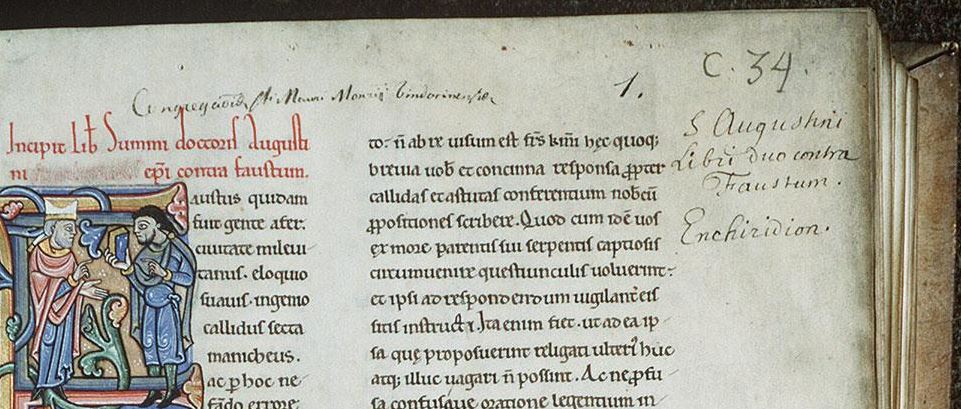 Congregaōis Sti Mauri Monrij Vindocinensis
1.
C. 34.
Incipit lib̄ Summi doctoris Augusti
ni ep̄i contra faustum.
austus quidam
fuit gente afer.
ciuitate mileui-
tanus. eloquio
suauis. ingenio
callidus secta
manicheus.
ac p hoc ne-
fādo errore
to. n̄ ab re uisum est frs̄ km̄i hęc quoq;
breuia uob̄ et concinna responsa ꝓpter
callidas et astutas conferentium nobcū
ꝓpositiones scribere. Quod cum idē uos
ex more parentis sui serpentis captiosis
circumuenire questiunculis uoluerint:
et ipsi ad respondendum uigilant̄ eis
sitis instructi. Ita enim fiet. ut ad ea ip-
sa quę proposuerint religati ulteri' huc
atq; illuc uagari n̄ possint. Ac ne ꝓfu-
sa confusaque oratione legentium in-
S Augustini
Libri duo contra
Faustum.
Enchiridion.